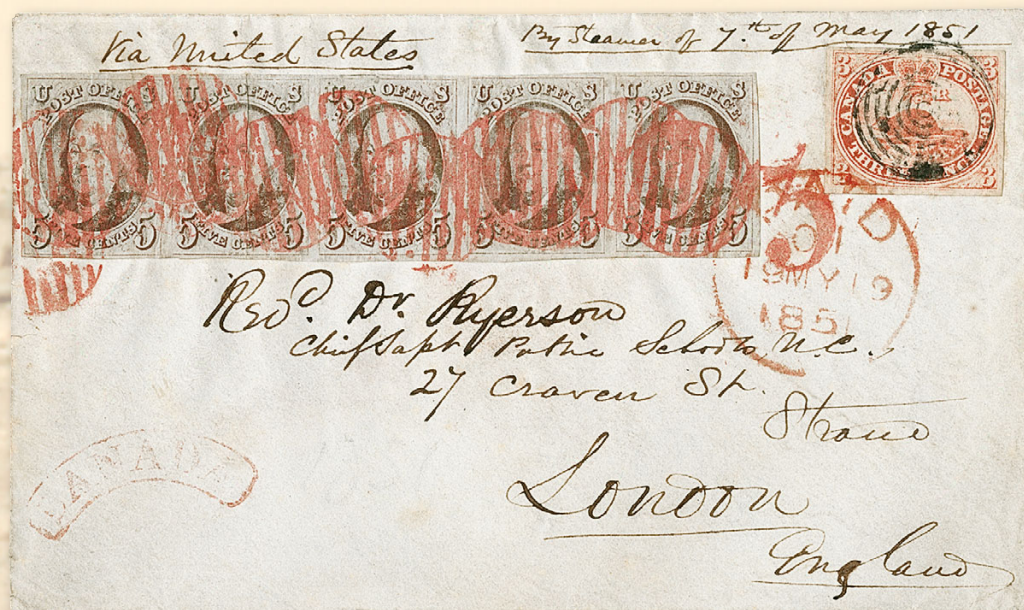 Via United States
By Steamer of 7th of May 1851
U S
POST OFFICE
5 FIVE CENTS 5
U S
POST OFFICE
5 FIVE CENTS 5
U S
POST OFFICE
5 FIVE CENTS 5
U S
POST OFFICE
5 FIVE CENTS 5
U S
POST OFFICE
5 FIVE CENTS 5
3 3
CANADA POSTAGE
THREE
3 3
PAID
19MY19
1851
Revd. Dr. Ryerson
Chief Supt Public Schools U.C.
27 Craven St.
Strand
London
England
CANADA